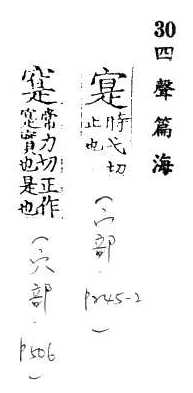 30 四聲篇海
寔
時弋切
止也
(宀部 p245-2)
常力切正作
寔實也是也
(穴部 p506)